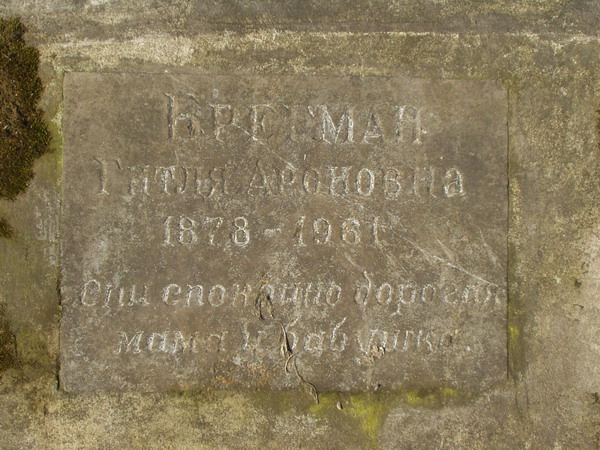 БРЕГМАН
ГИТЛЯ АРОНОВНА
1878-1961
Спи спокойно дорогая
мама и бабушка.